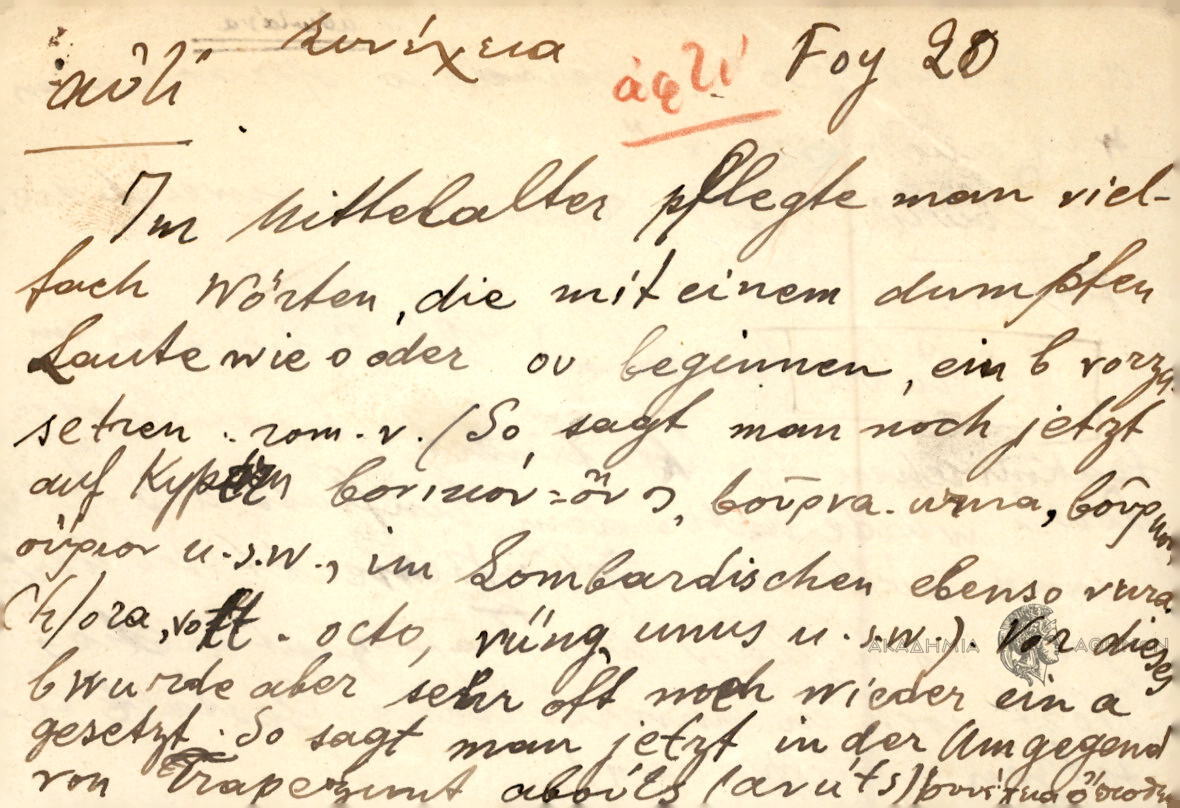 συνέχεια ἀφτί Foy 20
αὐτί
Im Mittelalter pflegte man viel-
fach Wörten, die mit einem dumpfen
Laute wie o oder ου beginnen, ein b vorzu
setzen . rom. v. (So sagt man noch jetzt
auf Kypern βουρνα. urna,
u.s.w., im Lombardischen ebenso vura
(h)ora, vott . octo, vüng unus u.s.w.). Vor dieses
ΑΚΑΔΗΜΙΑ ΑΘΗΝΩΝ
b wurde aber sehr oft noch wieder ein a
gesetzt. So sagt man jetzt in der Umgegend
von Trapezunt (avúts)